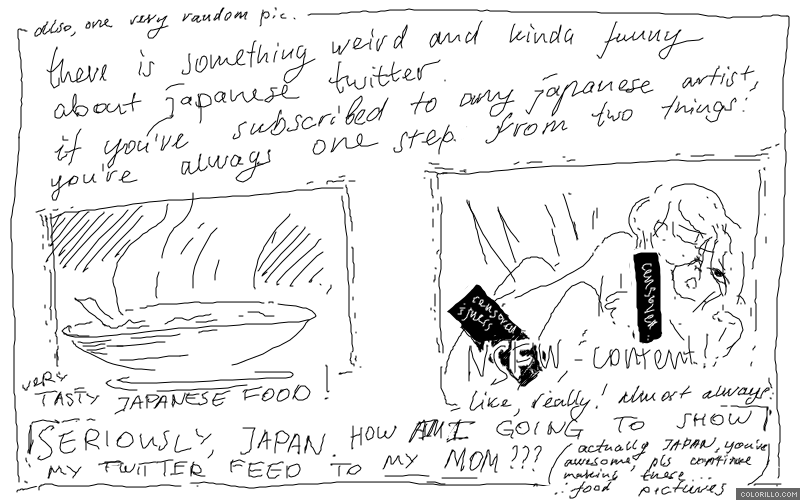 also, one very random pic.
there is something weird and kinda funny
about japanese twitter.
if you've subscribed to any japanese artist,
you're always one step from two things:
censored
censored
very
TASTY JAPANESE FOOD!
NSFW - content!
- like, really! almost always!
SERIOUSLY, JAPAN, HOW AM I GOING TO SHOW
MY TWITTER FEED TO MY MOM???
actually JAPAN, you're
awesome, pls continue
making these...
...food pictures
COLORILLO.COM